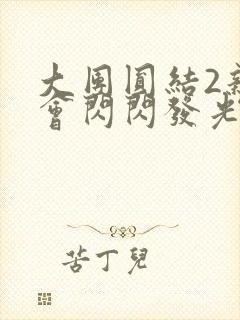 大團圓結2新
會閃閃發光
苦丁兒